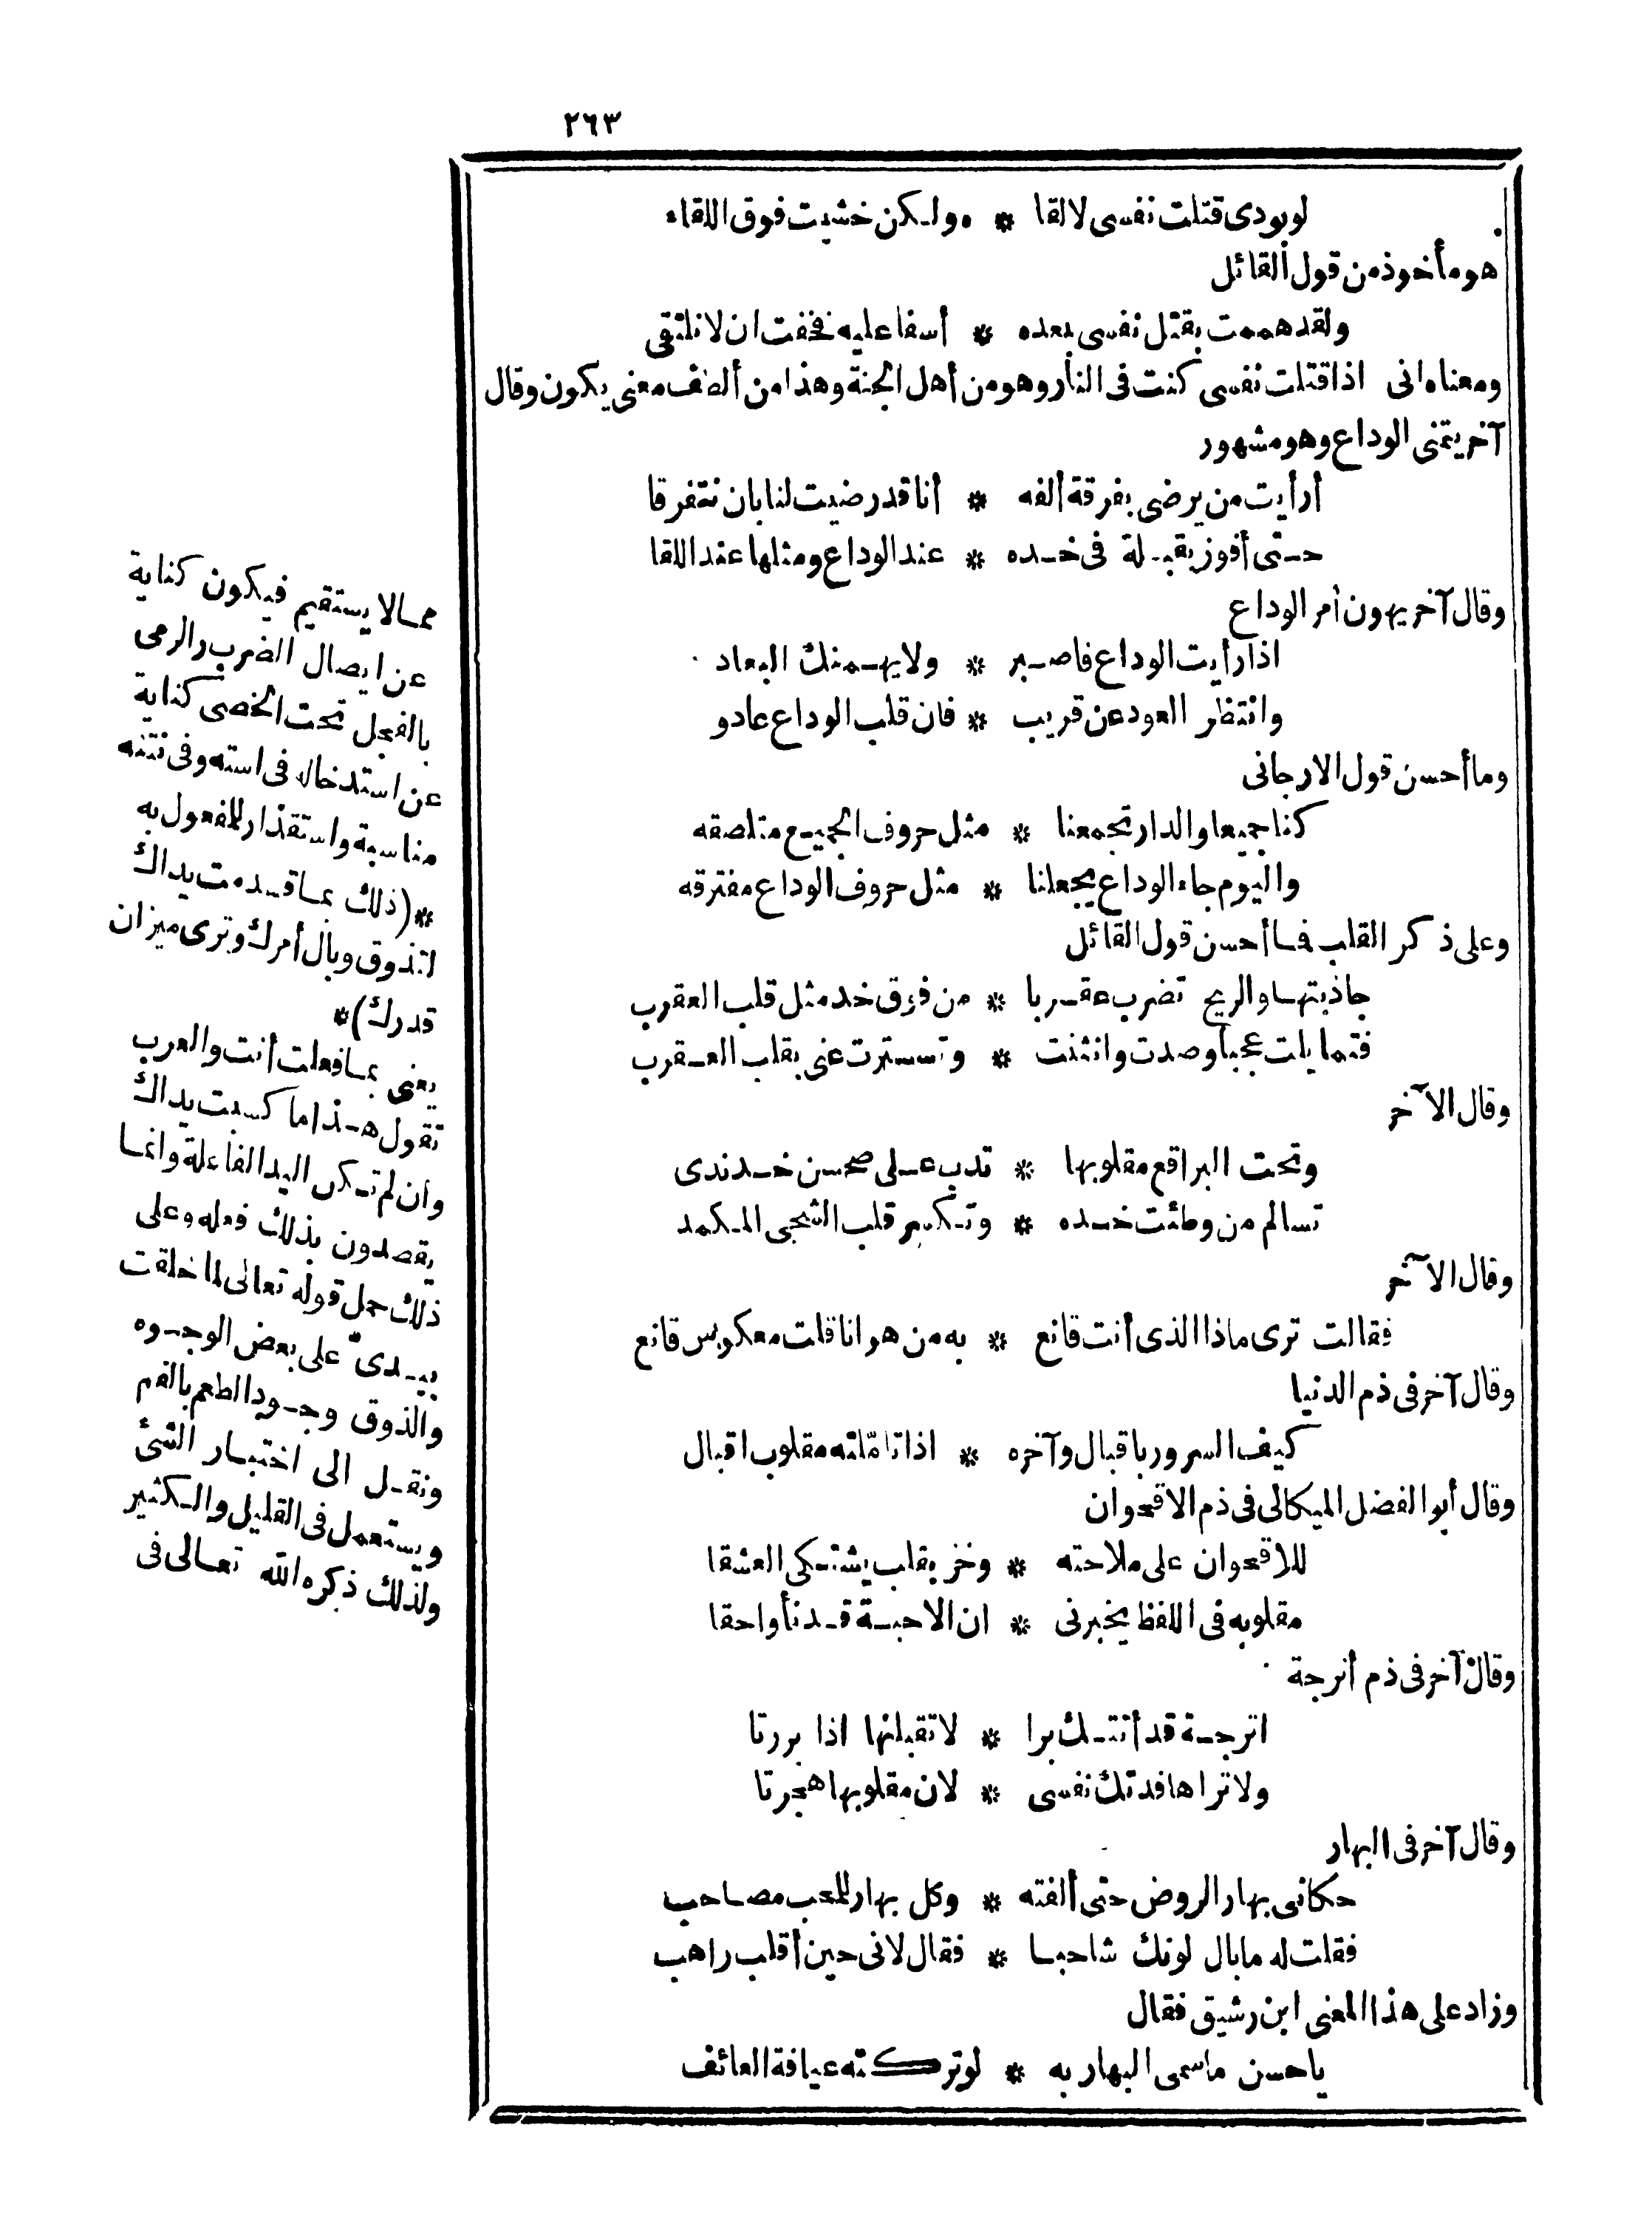 ٢٦٣
لو بودى قتلت نفسى لالقا * ه ولكن خشيت فوق اللقاء
هو مأخوذ من قول القائل
ولقد هممت بقتل نفسى بعده * أسفا عليه فخفت ان لا نلتقى
ومعناه انى اذا قتلت نفسى كنت فى النار وهو من أهل الجنة وهذا من ألطف معنى يكون وقال
آخر يتمنى الوداع وهو مشهور
أرأيت من يرضى بفرقة ألفه * أنا قد رضيت لنا بان نتفرقا
حتى أفوز بقبلة فى خده * عند الوداع ومثلها عند اللقا
وقال آخر يهون أمر الوداع
اذا رأيت الوداع فاصبر * ولا يهمنك البعاد
وانتظر العود عن قريب * فان قلب الوداع عادو
وما أحسن قول الارجانى
كنا جميعا والدار تجمعنا * مثل حروف الجميع متلصقه
واليوم جاء الوداع يجعلنا * مثل حروف الوداع مفترقه
وعلى ذكر القلب فما أحسن قول القائل
جاذبتها والريح تضرب عقربا * من فوق خد مثل قلب العقرب
فتمايلت عجبا وصدت وانثنت * وتسترت عنى بقلب العقرب
وقال الآخر
وتحت البراقع مقلوبها * تدب على صحن خد ندى
تسالم من وطئت خده * وتكسر قلب الشجى المكمد
وقال الآخر
فقالت ترى ماذا الذى أنت قانع * به من هوانا قلت معكوس قانع
وقال آخر فى ذم الدنيا
كيف السرور باقبال وآخره * اذا تاملته مقلوب اقبال
وقال أبو الفضل الميكالى فى ذم الاقحوان
للاقحوان على ملاحته * وخز بقلب يشتكى العشقا
مقلوبه فى اللفظ يخبرنى * ان الاحبة قد نأوا حقا
وقال آخر فى ذم أترجة
اترجة قد أتتك برا * لا تقبلنها اذا بررتا
ولا تراها فدتك نفسى * لان مقلوبها هجرتا
وقال آخر فى البهار
حكانى بهار الروض حتى ألفته * وكل بهار للمحب مصاحب
فقلت له ما بال لونك شاحبا * فقال لانى حين أقلب راهب
وزاد على هذا المعنى ابن رشيق فقال
يا حسن ما سمى البهار به * لو تركته عيافة العائف
مما لا يستقيم فيكون كناية
عن ايصال الضرب والرمى
بالفجل تحت الخصى كناية
عن استدخاله فى استه وفى نتنه
مناسبة واستقذار للمفعول به
*(ذلك بما قدمت يداك
لتذوق وبال أمرك وترى ميزان
قدرك)*
يعنى بما فعلت أنت والعرب
تقول هذا ما كسبت يداك
وان لم تكن اليد الفاعلة وانما
يقصدون بذلك فعله وعلى
ذلك حمل قوله تعالى لما خلقت
بيدىّ على بعض الوجوه
والذوق وجود الطعم بالفم
ونقل الى اختبار الشئ
ويستعمل فى القليل والكثير
ولذلك ذكره الله تعالى فى